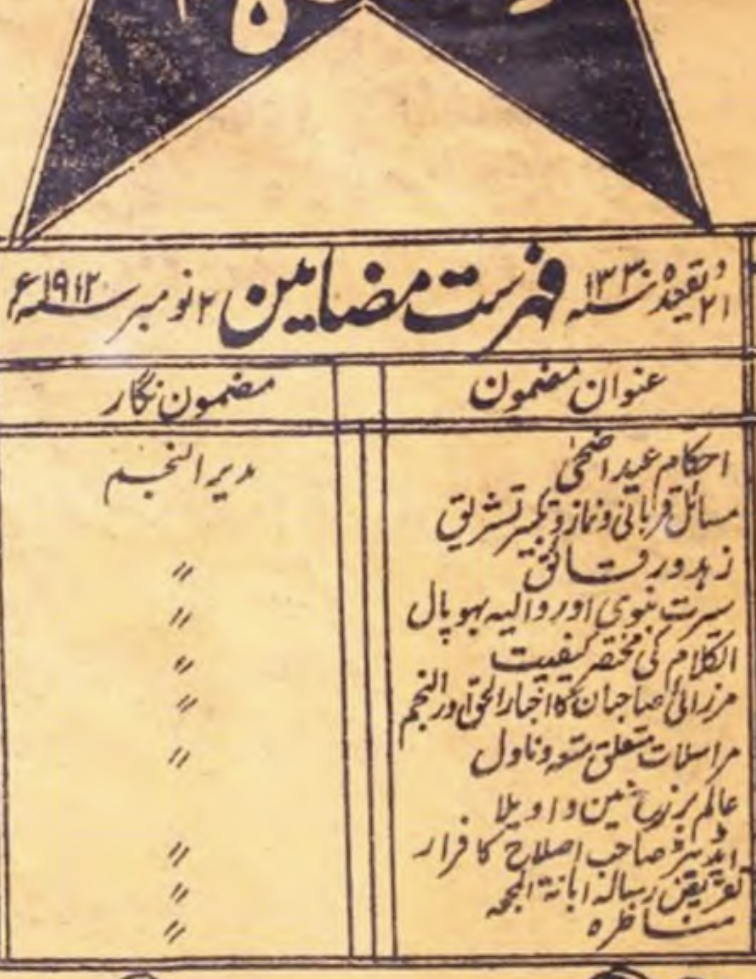 ۲۱ ذیقعدہ سنہ ۱۳۳۰ھ فہرست مضامین ۲ نومبر سنہ ۱۹۱۲ء
عنوان مضمون مضمون نگار
احکام عید اضحیٰ مدیر النجم
مسائل قربانی و نماز و تکبیر تشریق
زہد و رقائق 〃
سیرت نبوی اور والیہ بھوپال 〃
الکلام کی مختصر کیفیت 〃
مرزائی صاحبان کا اخبار الحق اور النجم 〃
مراسلات متعلق متعہ و ناول 〃
عالم برزخ میں واویلا
ایڈیٹر صاحب اصلاح کا فرار 〃
تقریظ رسالہ ابانۃ 〃
مناظرہ 〃